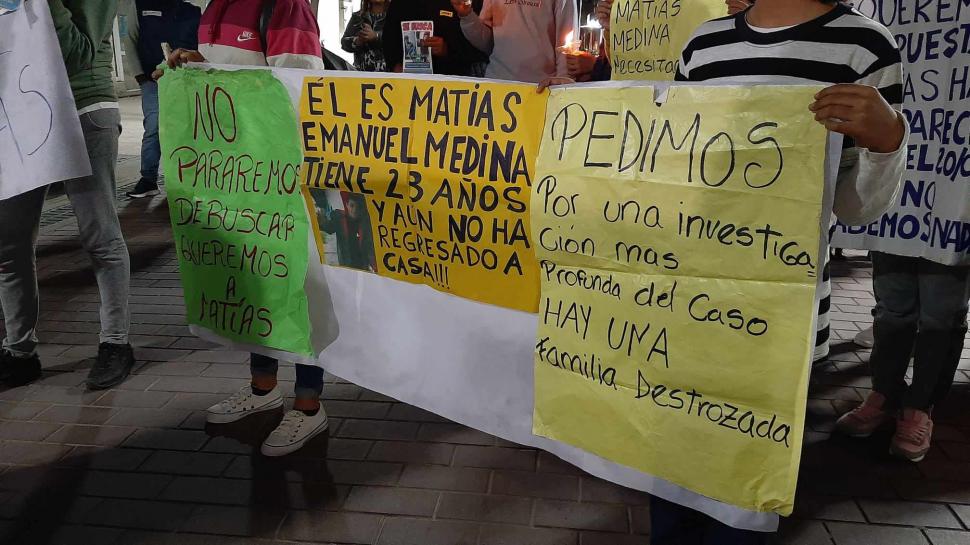 NO
PARAREMOS
DE BUSCAR
QUEREMOS
A
MATÍAS
ÉL ES MATÍAS
EMANUEL MEDINA
TIENE 23 AÑOS
Y AÚN NO HA
REGRESADO A
CASA!!!
PEDIMOS
Por una investiga
ción mas
Profunda del Caso
HAY UNA
Familia Destrozada
MATÍAS
MEDINA
Necesita
SE BUSCA
QUEREM
PUEST
AS HA
PARECI
EL 20/0
NO
BEMOS NAD
AS